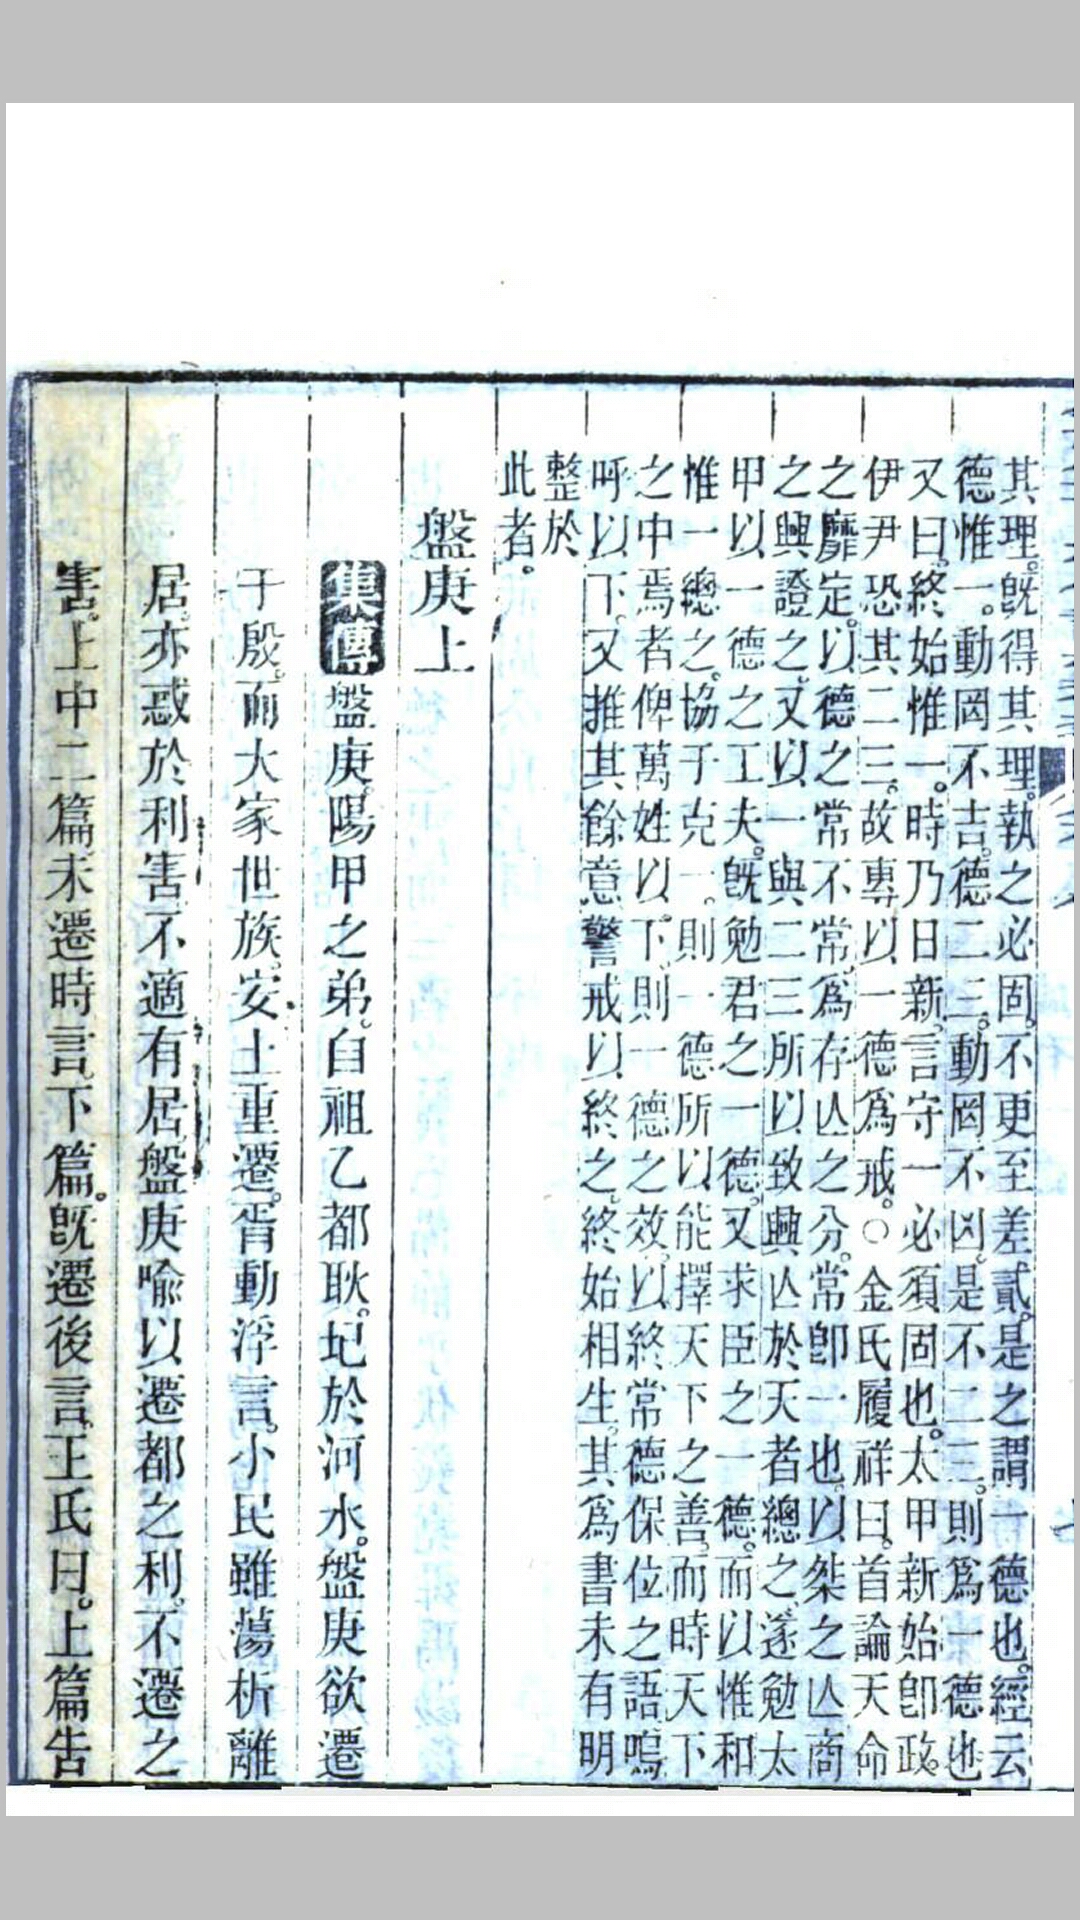 其理。旣得其理。執之必固。不更至差貳。是之謂一德也。經云
德惟一。動罔不吉。德二三。動罔不凶。是不二三。則爲一德也
又曰。終始惟一。時乃日新。言守一必須固也。太甲新始卽政。
伊尹恐其二三。故專以一德爲戒。○金氏履祥曰。首論天命
之靡定。以德之常不常。爲存亾之分。常卽一也。以桀之亾商
之興證之。又以一與二三所以致興亾於天者總之。遂勉太
甲以一德之工夫。旣勉君之一德。又求臣之一德。而以惟和
惟一總之。協于克一。則一德所以能擇天下之善。而時天下
之中焉者。俾萬姓以下。則一德之效。以終常德保位之語。嗚
呼以下。又推其餘意警戒以終之。終始相生。其爲書未有明
整於
此者。
盤庚上
集傳盤庚。陽甲之弟。自祖乙都耿。圮於河水。盤庚欲遷
于殷。而大家世族。安土重遷。胥動浮言。小民雖蕩析離
居。亦惑於利害。不適有居。盤庚喻以遷都之利。不遷之
害。上中二篇。未遷時言。下篇。旣遷後言。王氏曰。上篇告